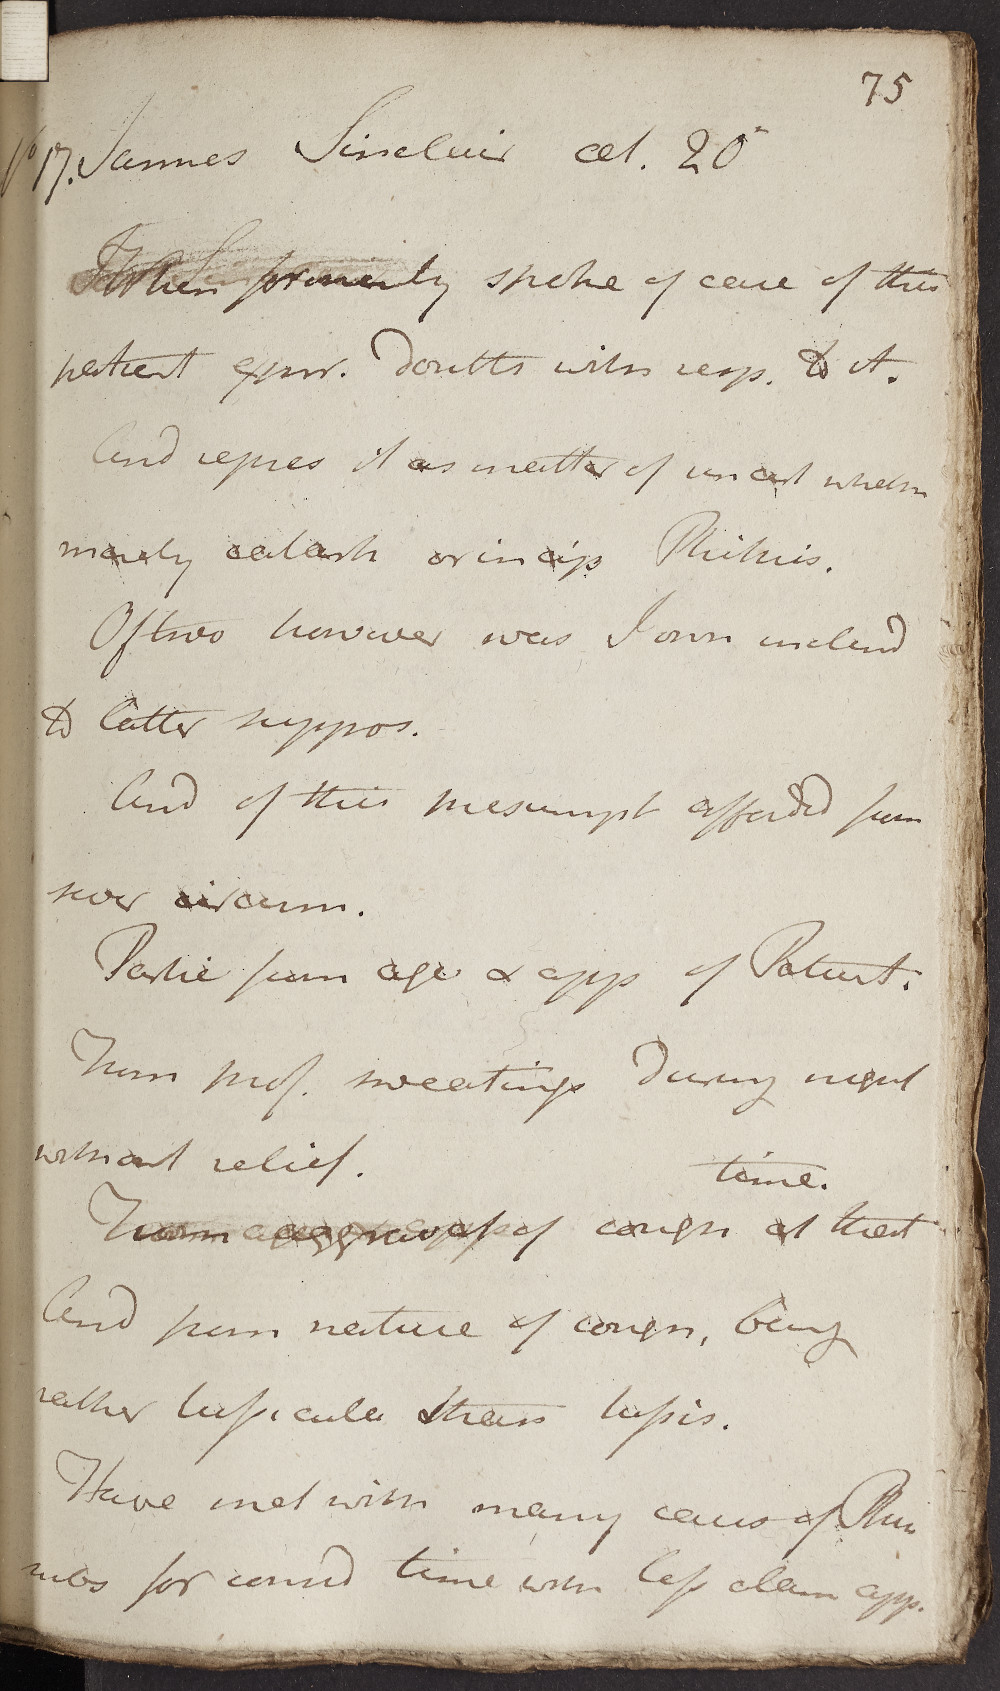 75
No 17. James Sinclair æt. 20
When formerly spoke of case of this
patient expr. doubts with resp. to it.
And repres it as matter of uncert wheth
merely catarrh or incip Phthis.
Of two however was I own inclind
to latter suppos.
And of this presumpt afforded from
sever circum.
Partic from age & app of Patient.
From prof. sweatings During night
without relief.
time.
From aggravat of cough at that
And from nature of cough, being
rather tussicula than tussis.
Have met with many cases of
for consid time with less alarm app.